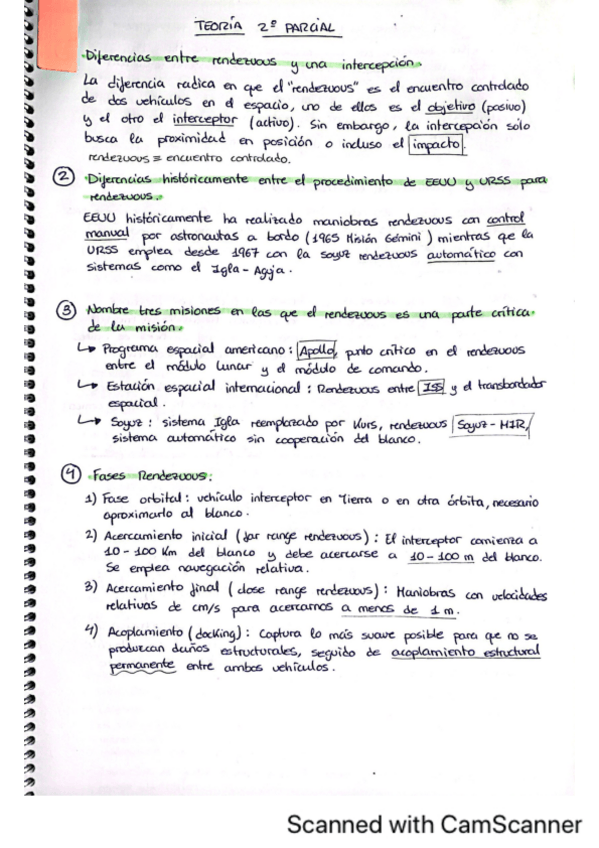 TEORÍA 2º PARCIAL
·Diferencias entre rendezvous y una intercepción.
La diferencia radica en que el "rendezvous" es el encuentro controlado
de dos vehículos en el espacio, uno de ellos es el objetivo (pasivo)
y el otro el interceptor (activo). Sin embargo, la intercepción solo
busca la proximidad en posición o incluso el impacto.
rendezvous = encuentro controlado.
2 ·Diferencias históricamente entre el procedimiento de EEUU y URSS para
rendezvous.
EEUU históricamente ha realizado maniobras rendezvous con control
manual por astronautas a bordo (1965 Misión Gémini) mientras que la
URSS emplea desde 1967 con la soyuz rendezvous automático con
sistemas como el Igla-Aguja.
3 Nombre tres misiones en las que el rendezvous es una parte crítica
de la misión.
↳ Programa espacial americano: Apollo, punto crítico en el rendezvous
entre el módulo lunar y el módulo de comando.
↳ Estación espacial internacional: Rendezvous entre ISS y el transbordador
espacial.
↳ Soyuz: sistema Igla reemplazado por Kurs, rendezvous Soyuz-MIR,
sistema automático sin cooperación del blanco.
4 ·Fases Rendezvous:
1) Fase orbital: vehículo interceptor en Tierra o en otra órbita, necesario
aproximarlo al blanco.
2) Acercamiento inicial (far range rendezvous): El interceptor comienza a
10-100 Km del blanco y debe acercarse a 10-100 m del blanco.
Se emplea navegación relativa.
3) Acercamiento final (close range rendezvous): Maniobras con velocidades
relativas de cm/s para acercarnos a menos de 1 m.
4) Acoplamiento (docking): Captura lo más suave posible para que no se
produzcan daños estructurales, seguido de acoplamiento estructural
permanente entre ambos vehículos.
Scanned with CamScanner